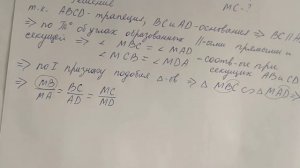 Решение
МС-?
т.к. ABCD - трапеция, BC и AD - основания ⇒ BC ∥ A
⇒ по Т^м об углах образованных ∥-ыми прямыми и
секущей ⇒ ∠MBC = ∠MAD
∠MCB = ∠MDA - соотв-ые при
секущих AB и CD
⇒ по I признаку подобия Δ-ов ⇒ Δ MBC ∽ Δ MAD ⇒
⇒ MB/MA = BC/AD = MC/MD